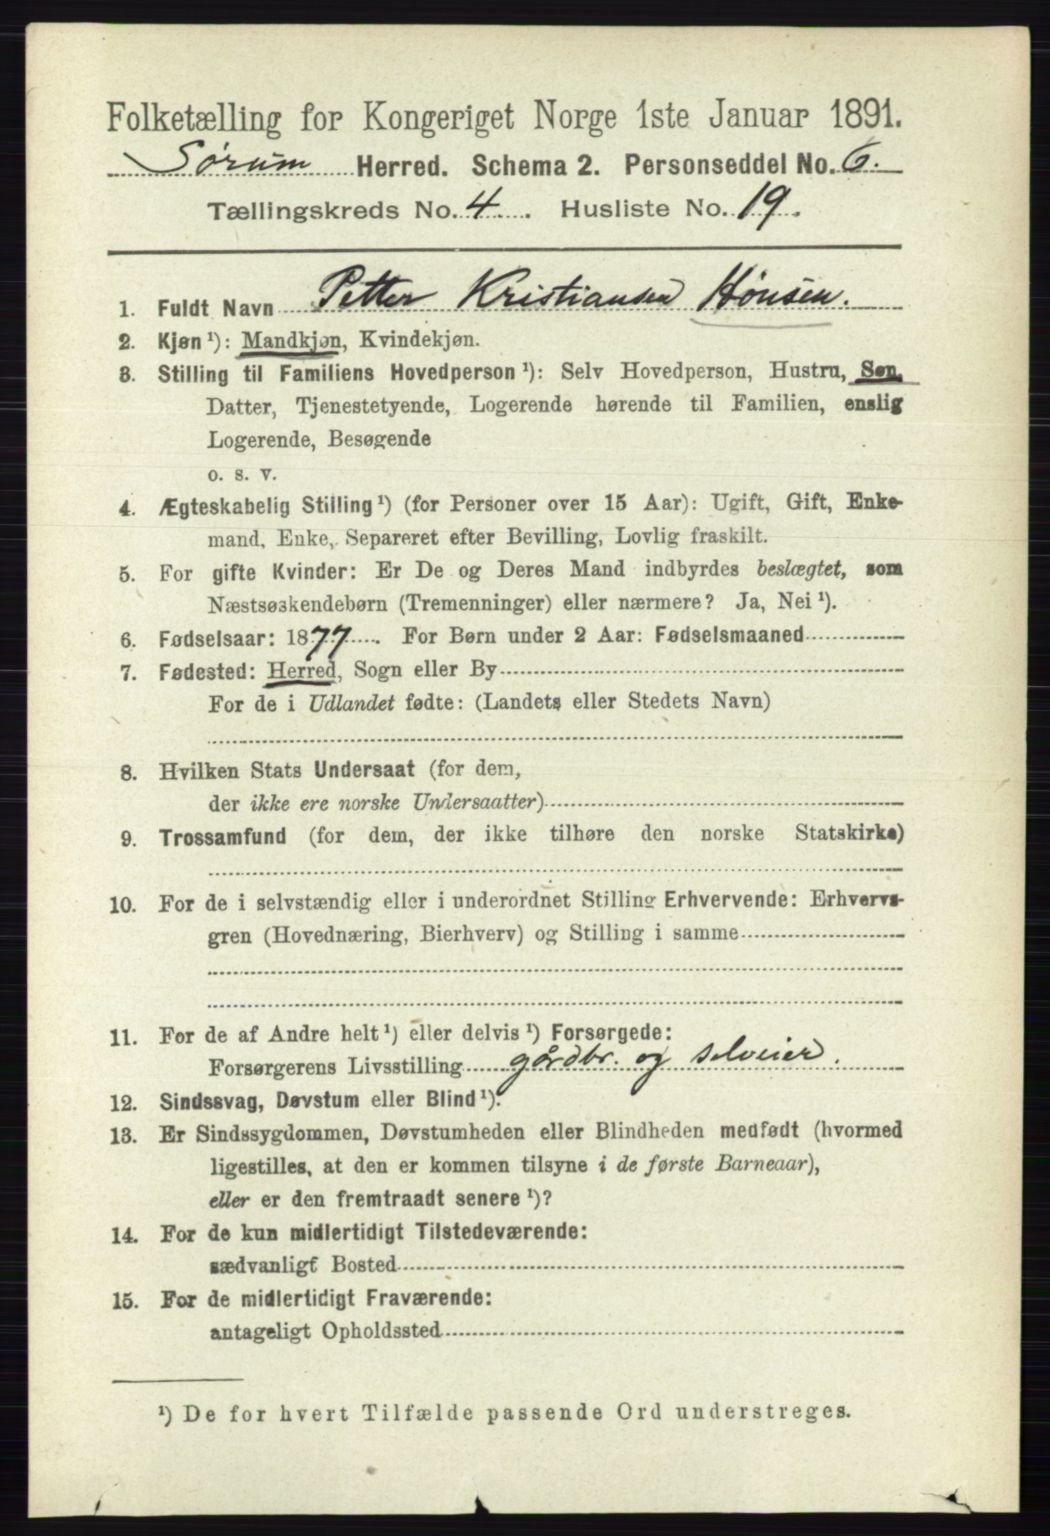 Folketælling for Kongeriget Norge 1ste Januar 1891.
Sørum Herred. Schema 2. Personseddel No. 6.
Tællingskreds No. 4. Husliste No. 19.
1. Fuldt Navn Petter Kristiansen Hønsen.
2. Kjøn ¹): Mandkjøn, Kvindekjøn.
3. Stilling til Familiens Hovedperson ¹): Selv Hovedperson, Hustru, Søn,
Datter, Tjenestetyende, Logerende hørende til Familien, enslig
Logerende, Besøgende
o. s. v.
4. Ægteskabelig Stilling ¹) (for Personer over 15 Aar): Ugift, Gift, Enke-
mand, Enke, Separeret efter Bevilling, Lovlig fraskilt.
5. For gifte Kvinder: Er De og Deres Mand indbyrdes beslægtet, som
Næstsøskendebørn (Tremenninger) eller nærmere? Ja, Nei ¹).
6. Fødselsaar: 1877. For Børn under 2 Aar: Fødselsmaaned
7. Fødested: Herred, Sogn eller By
For de i Udlandet fødte: (Landets eller Stedets Navn)
8. Hvilken Stats Undersaat (for dem,
der ikke ere norske Undersaatter)
9. Trossamfund (for dem, der ikke tilhøre den norske Statskirke)
10. For de i selvstændig eller i underordnet Stilling Erhvervende: Erhvervs-
gren (Hovednæring, Bierhverv) og Stilling i samme
11. For de af Andre helt ¹) eller delvis ¹) Forsørgede:
Forsørgerens Livsstilling gårdbr. og selveier.
12. Sindssvag, Døvstum eller Blind ¹).
13. Er Sindssygdommen, Døvstumheden eller Blindheden medfødt (hvormed
ligestilles, at den er kommen tilsyne i de første Barneaar),
eller er den fremtraadt senere ¹)?
14. For de kun midlertidigt Tilstedeværende:
sædvanligt Bosted
15. For de midlertidigt Fraværende:
antageligt Opholdssted
¹) De for hvert Tilfælde passende Ord understreges.